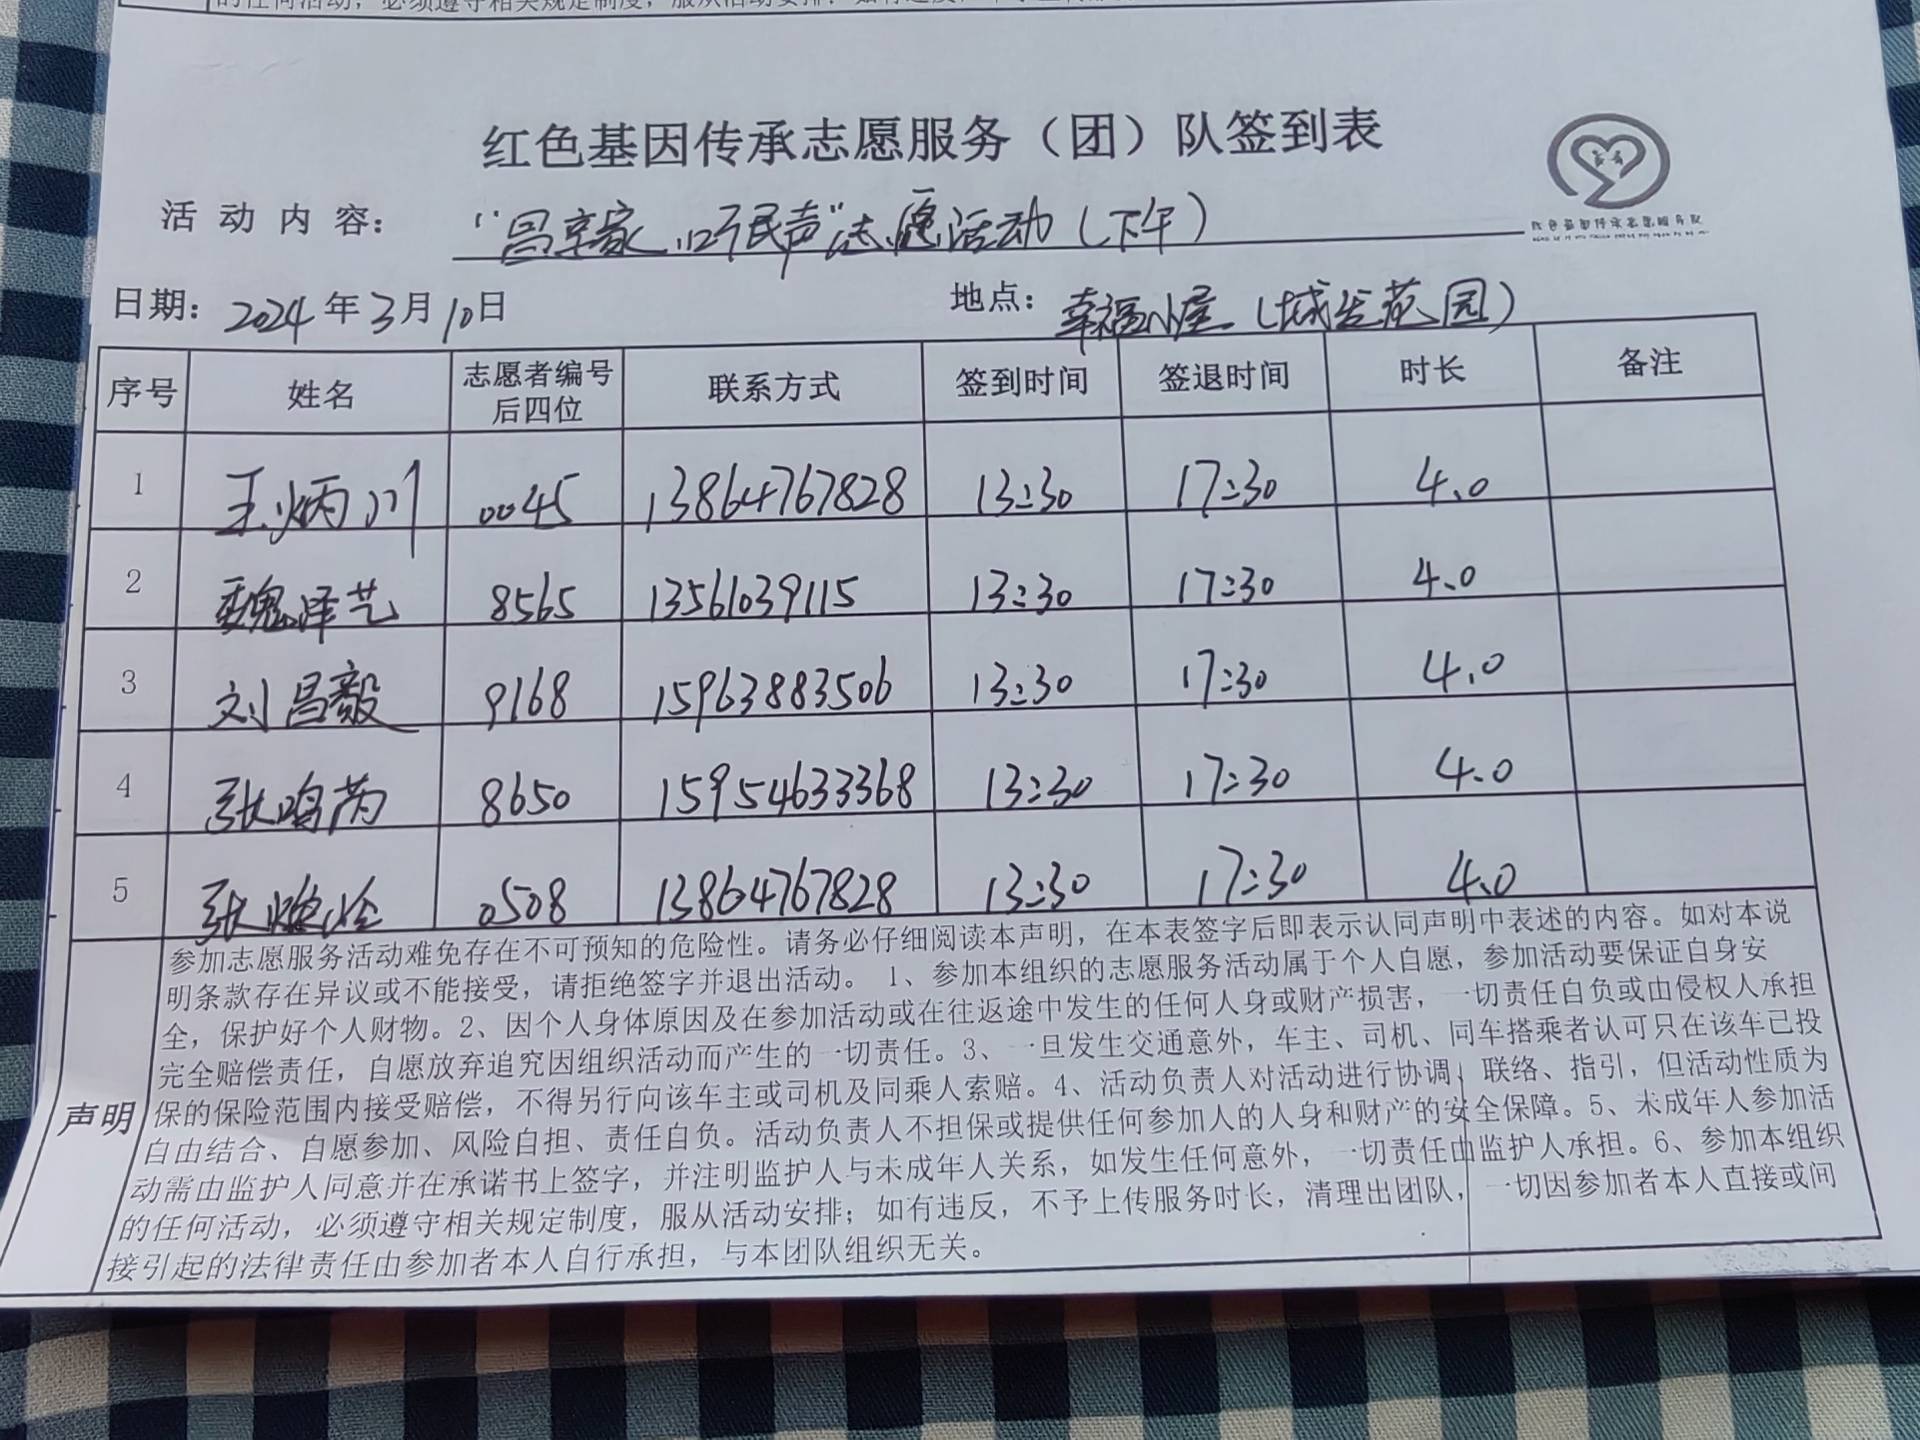 的任何活动，必须遵守相关规定制度，服从活动安排；如有违反
红色基因传承志愿服务（团）队签到表
活动内容： “昌享家，听民声”志愿活动（下午）
红色基因传承志愿服务队
日期：2024年3月10日 地点：幸福小屋（城兴花园）
序号 姓名 志愿者编号后四位 联系方式 签到时间 签退时间 时长 备注
1 王炳川 0045 13864767828 13:30 17:30 4.0
2 魏泽艺 8565 13561039115 13:30 17:30 4.0
3 刘昌毅 9168 15963883506 13:30 17:30 4.0
4 张鸣芮 8650 15954633368 13:30 17:30 4.0
5 张焕玲 0508 13864767828 13:30 17:30 4.0
声明
参加志愿服务活动难免存在不可预知的危险性。请务必仔细阅读本声明，在本表签字后即表示认同声明中表述的内容。如对本说
明条款存在异议或不能接受，请拒绝签字并退出活动。 1、参加本组织的志愿服务活动属于个人自愿，参加活动要保证自身安
全，保护好个人财物。2、因个人身体原因及在参加活动或在往返途中发生的任何人身或财产损害，一切责任自负或由侵权人承担
完全赔偿责任，自愿放弃追究因组织活动而产生的一切责任。3、一旦发生交通意外，车主、司机、同车搭乘者认可只在该车已投
保的保险范围内接受赔偿，不得另行向该车主或司机及同乘人索赔。4、活动负责人对活动进行协调、联络、指引，但活动性质为
自由结合、自愿参加、风险自担、责任自负。活动负责人不担保或提供任何参加人的人身和财产的安全保障。5、未成年人参加活
动需由监护人同意并在承诺书上签字，并注明监护人与未成年人关系，如发生任何意外，一切责任由监护人承担。6、参加本组织
的任何活动，必须遵守相关规定制度，服从活动安排；如有违反，不予上传服务时长，清理出团队，一切因参加者本人直接或间
接引起的法律责任由参加者本人自行承担，与本团队组织无关。